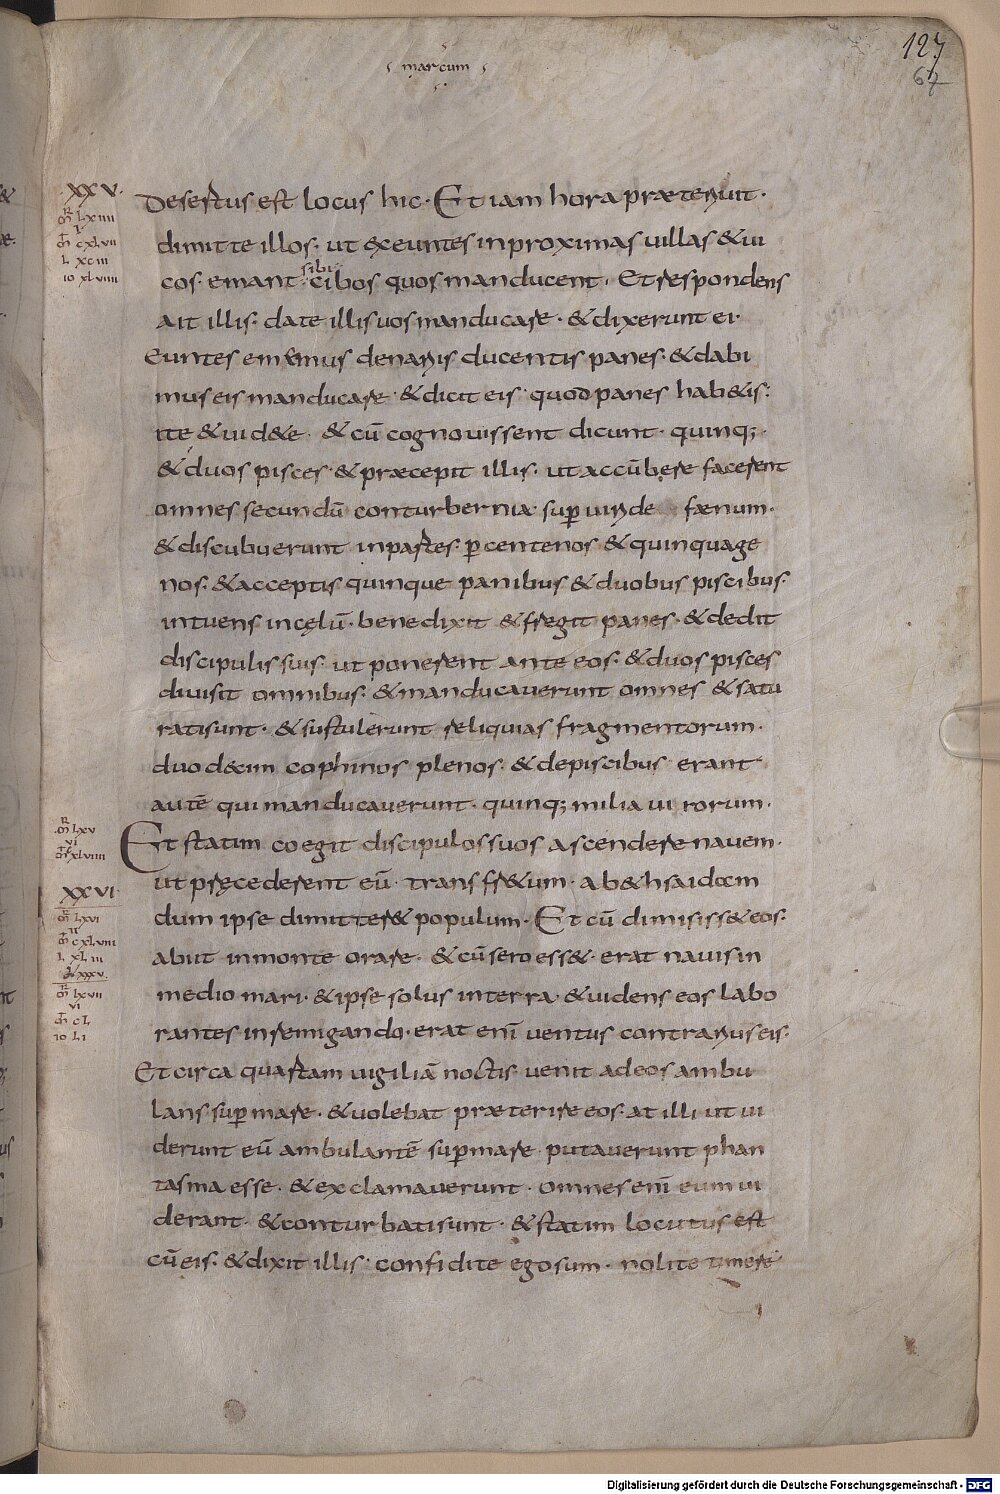 marcum
127
67
XXV.
Desertus est locus hic. Et iam hora præteriuit.
mr lxiiii
mt cxlvii
l xciii
io xlviiii
dimitte illos. ut exeuntes inproximas uillas & ui
cos. emant sibi cibos quos manducent. Et respondens
ait illis. date illis uos manducare. & dixerunt ei.
Euntes emimus denariis ducentis panes. & dabi
mus eis manducare. & dicit eis. quod panes hab&is.
ite & uid&e. & cū cognouissent dicunt. quinq;.
& duos pisces. & præcepit illis. ut accūbere facerent
omnes secundū conturbernia. sup uiride fænum.
& discubuerunt inpartes. p centenos & quinquage
nos. & acceptis quinque panibus & duobus piscibus.
intuens incęlū. benedixit & fregit panes. & dedit
discipulis suis. ut ponerent ante eos. & duos pisces
diuisit omnibus. & manducauerunt omnes & satu
rati sunt. & sustulerunt reliquias fragmentorum.
duodecim cophinos plenos. & depiscibus erant
autē qui manducauerunt. quinq; milia uirorum.
mr lxv
vi
mt cxlviiii
Et statim coegit discipulos suos ascendere nauem.
ut pręcederent eū. trans fr&um. ab&hsaidam
XXVI
mr lxvi
ii
mt cxlviii
l xliii
io xxxv.
dum ipse dimitter& populum. Et cū dimisiss& eos.
abiit inmonte orare. & cū sero ess&. erat nauis in
mr lxvii
vi
mt cl
io li
medio mari. & ipse solus interra. & uidens eos labo
rantes inremigando. erat enī uentus contrarius eis.
Et circa quartam uigiliā noctis. uenit ad eos ambu
lans sup mare. & uolebat præterire eos. at illi ut ui
derunt eū ambulantē sup mare. putauerunt phan
tasma esse. & exclamauerunt. omnes enī eum ui
derant. & conturbati sunt. & statim locutus est
cū eis. & dixit illis. confidite ego sum. nolite timere
Digitalisierung gefördert durch die Deutsche Forschungsgemeinschaft - DFG